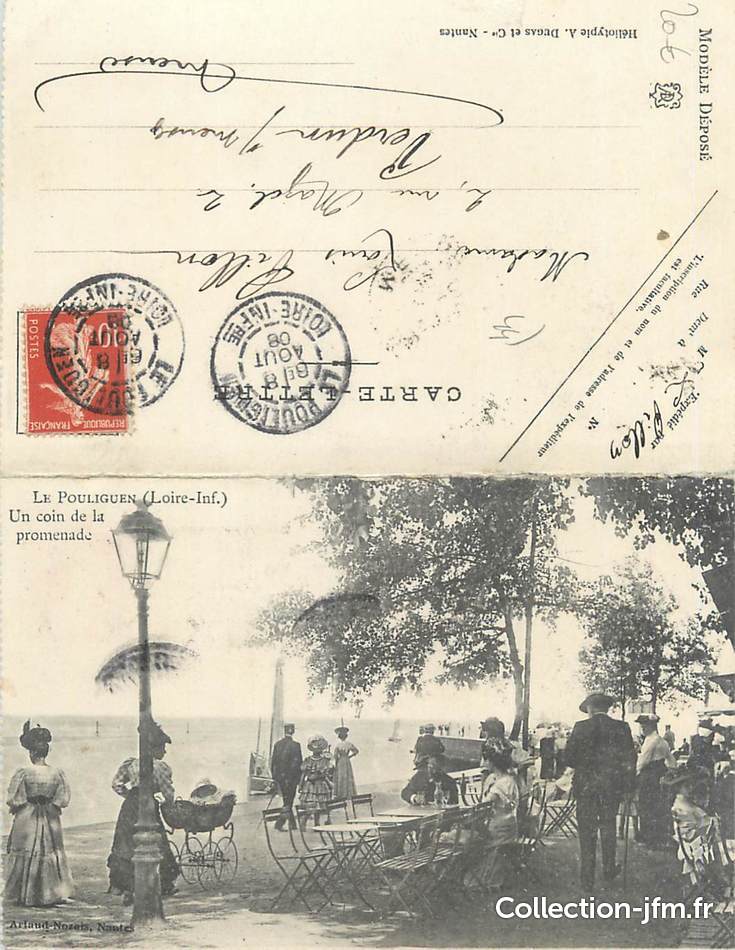 CARTE-LETTRE
Madame Louis Pillon
2, rue Mazel. 2
Verdun s/meuse
Meuse
Expédié par
M Pillon
Demt à
Rue
N°
L'inscription du nom et de l'adresse de l'expéditeur
est facultative.
MODÈLE DÉPOSÉ
Héliotypie A. DUGAS et Cie - Nantes
REPUBLIQUE FRANÇAISE
POSTES
10
LE POULIGUEN
LOIRE-INFRE
8
AOUT
08
LE POULIGUEN
LOIRE-INFRE
8
AOUT
08
LE POULIGUEN (Loire-Inf.)
Un coin de la
promenade
Arlaud-Nozais, Nantes
Collection-jfm.fr